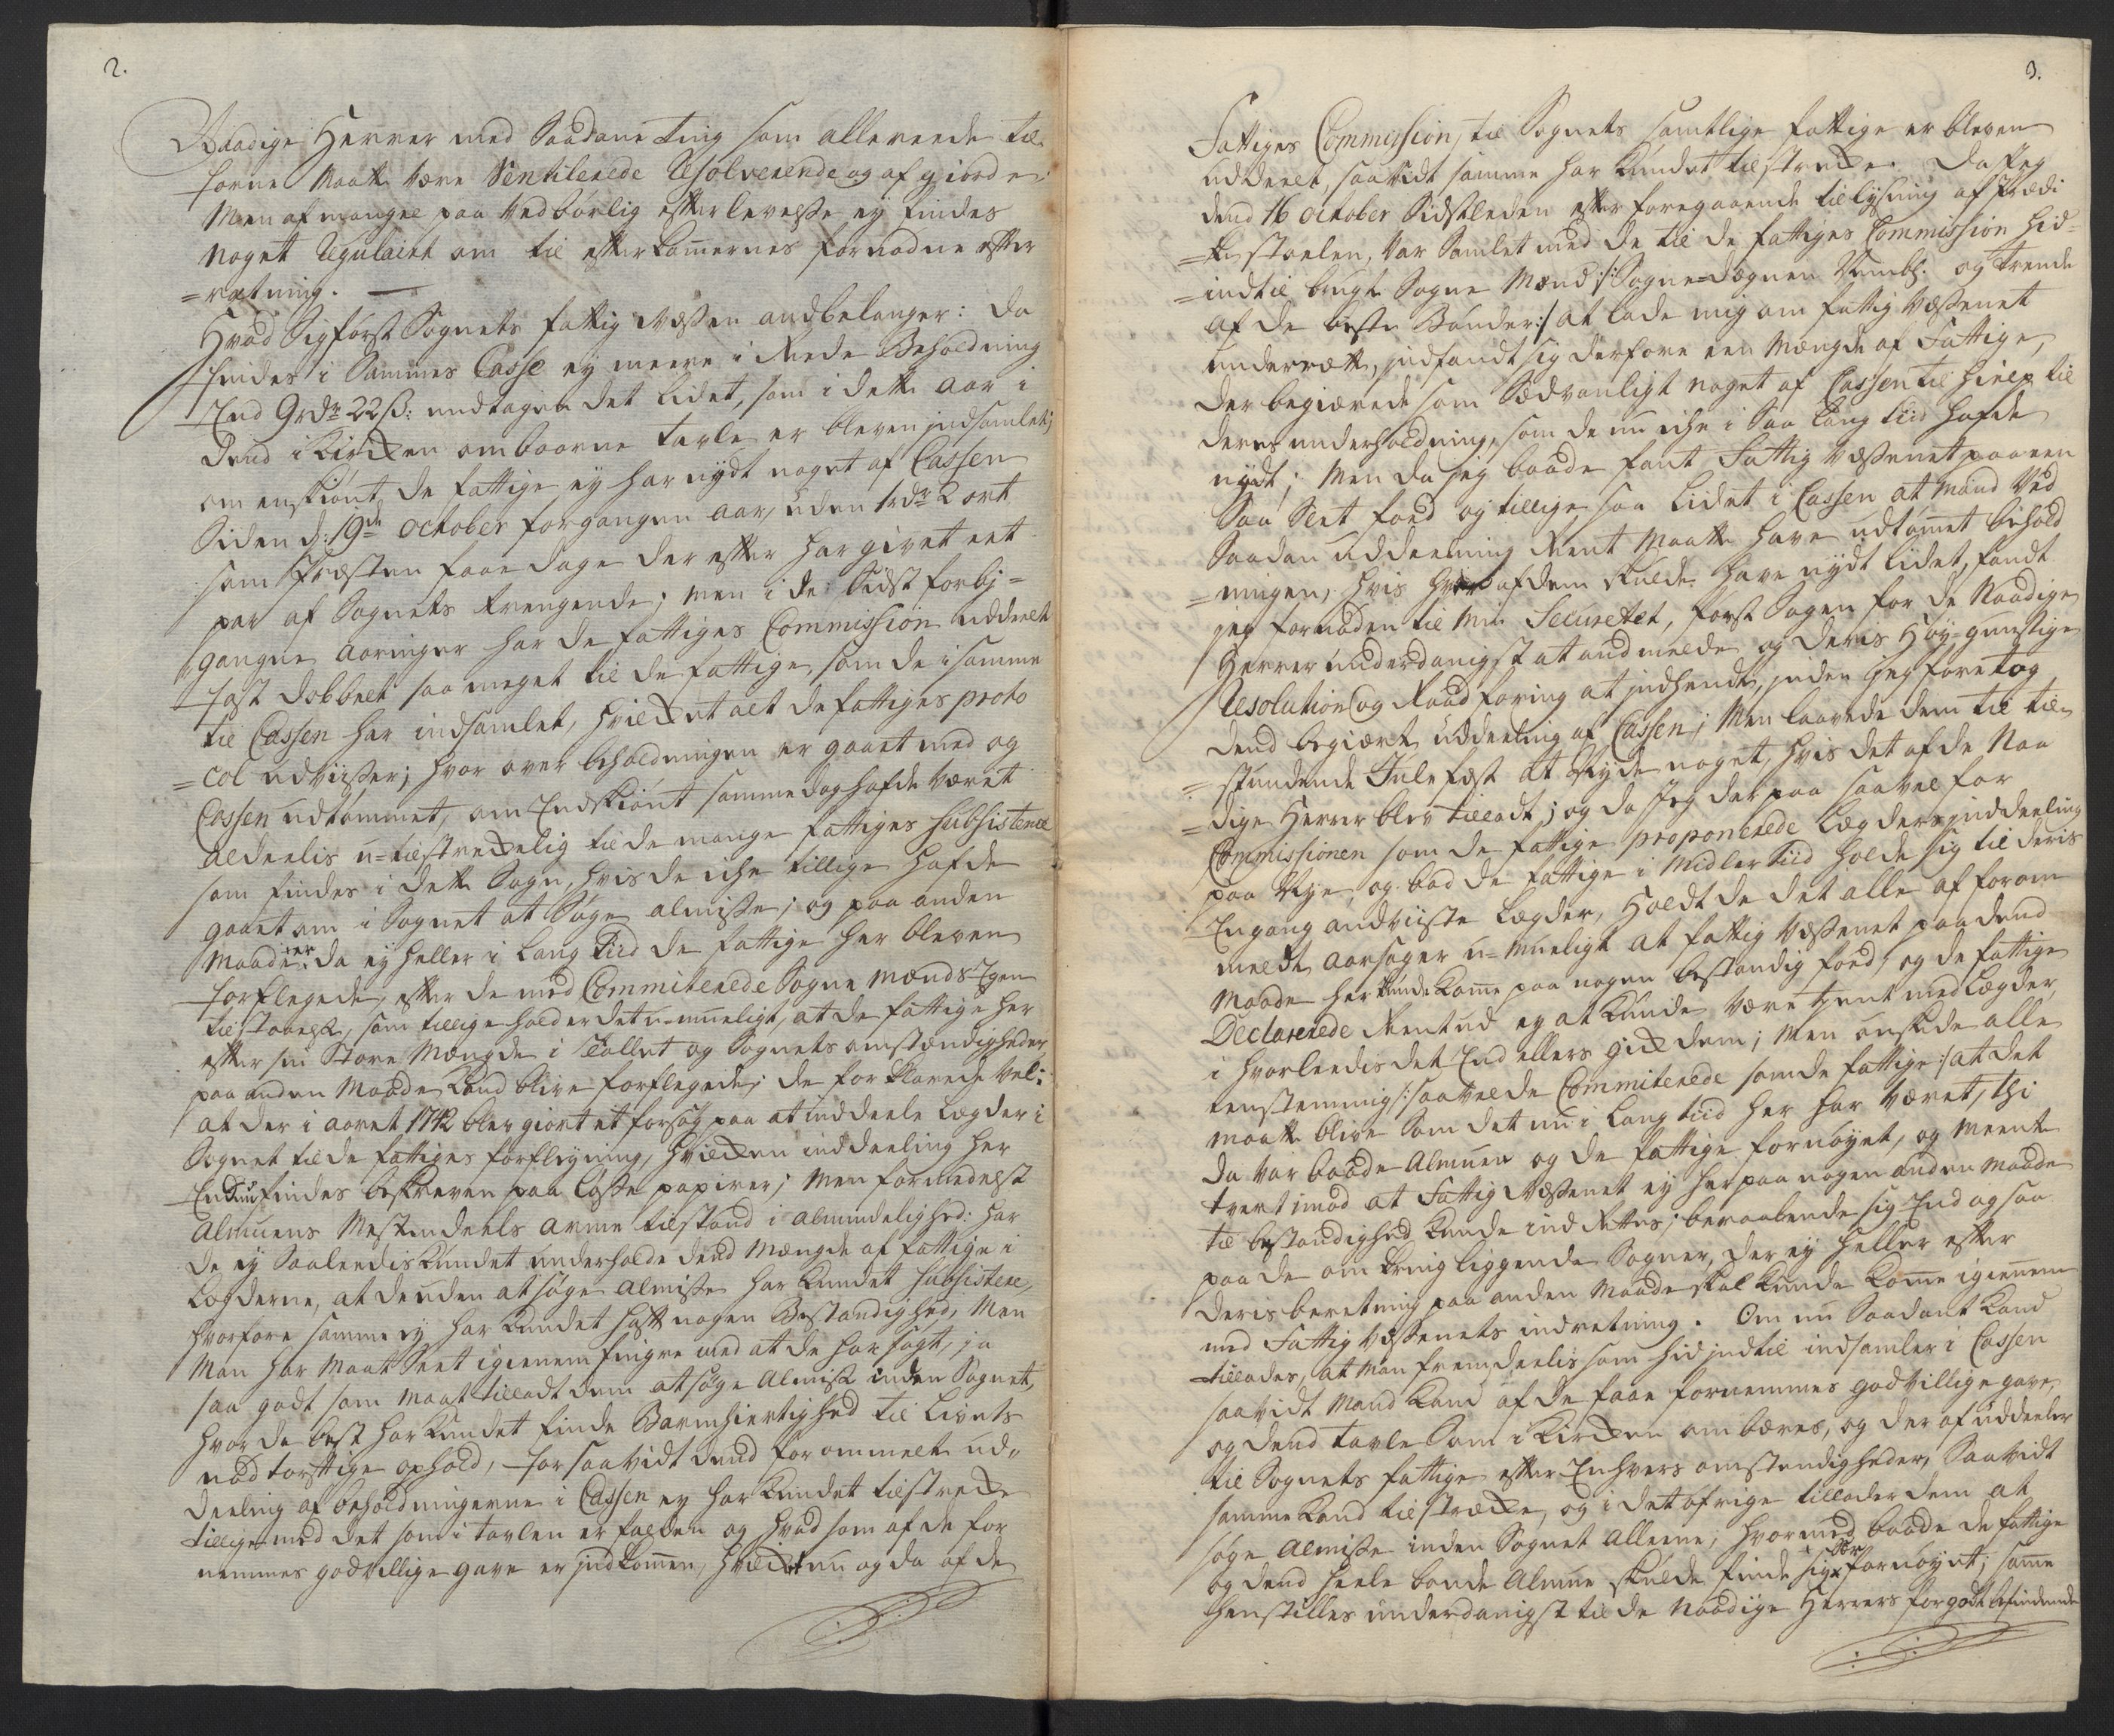 2.
Naadige Herrer med Saadane Ting som allereede til-
forne Maatte være Ventilerede Resolverende og af giorde
Men af mangel paa Vedbørlig efterlevelse ey findes
noget Regulairt om til efterkom̄ernes fornødne efter
=retning.
Hvad Sig først Sognets fattig Væsen andbelanger: da
findes i Sammes Casse ey meere i Rede Beholdning
End 9 rdr 22 ß: undtagen det Lidet, som i dette aar i
dend i Kircken omboarne Tavle er bleven indsamlet;
om enskiønt de fattige ey har nydt noget af Cassen
Siden d: 19de october forgangen aar, uden 1 rdr 2 ort
som Præsten faae dage der efter har givet eet
par af Sognets trengende; Men i de Sidst forbj=
gangne aaringer har de fattiges Commission uddeelt
fast dobbelt saa meget til de fattige, som de i samme
til Cassen har indsamlet, hvilcket alt de fattiges proto
=col udviiser; hvor over beholdningen er gaaet med og
Cassen udtømmet, om Endskiønt samme dog hafde været
aldeelis u=tilstreckelig til de mange fattiges Subsistence
som findes i dette Sogn, hvis de iche tillige hafde
gaaet om i Sognet at Søge almisse; og paa anden
Maade er da ey heller i Lang Tiid de fattige her bleven
forflegede, efter de med Commiterede Sogne Mænds Egen
tilstaaelse, som tillige holder det u=mueligt, at de fattige her
efter sin Store Mængde i Tallet og Sognets omstændigheder
paa anden Maade Kand blive forflegede; de forklarede vel:
at der i aaret 1742 blev giort et forsøg paa at inddeele Lægder i
Sognet til de fattiges forfleigning, hvilcken inddeeling her
End nu findes beskreven paa Løsse papirer; Men formedelst
Almuens Mestendeels arme tilstand i almindelighed: har
de ey Saaleedis Kundet underholde dend Mængde af fattige i
Lægderne, at de uden at søge almisse har Kundet Subsistere,
hvorfore samme ey har Kundet hatt nogen Bestandighed, Men
Man har Maat Seet igiennem fingre med at de har søgt, ja
saa godt som Maat tilladt dem at søge Almisse inden Sognet,
hvor de best har Kundet finde Barmhiertighed til Livets
nødtørftige ophold, for saavidt dend forommelte ud-
deeling af beholdningerne i Cassen ey har Kundet tilstrecke
tillige med det som i tavlen er falden og hvad som af de for
nemmes godvillige gave er indkom̄en, hvilcket nu og da af de

3.
Fattiges Commission, til Sognets samtlige fattige er bleven
uddeelt, saavidt samme har Kundet tilstrecke. Da Jeg
dend 16 october Sidstleden efter foregaaende tillysning af Prædi
=kestoelen, var Samlet med de til de fattiges Commission hid=
=indtil brugte Sogne Mænd :/: Sogne=Degnen og trende
af de beste Bønder :/ at lade mig om fattig Væsenet
underrette, indfandt sig derfore een Mængde af Fattige,
der begiærede som Sædvanligt noget af Cassen til hielp til
deres underholdning, som de nu iche i Saa lang tiid hafde
nydt; Men da jeg baade fant Fattig Væsenet paa een
Saa Slet foed og tillige saa Lidet i Cassen at Mand Ved
Saadan uddeeling Rent Maatte have udtøm̄et behold
=ningen, hvis hver af dem skulde have nydt Lidet, fandt
jeg fornøden til Min Securetet, først Sagen for de Naadige
Herrer underdanigst at andmelde og deris Høy=gunstige
Resolution og Raadføring at indhendte, inden Jeg foretog
dend begiærte uddeeling af Cassen; Men laavede dem til til-
=stundende Julefest at Nyde noget, hvis det af de Naa
=dige Herrer blev tilladt; og da Jeg der paa saavel for
Commissionen som de fattige proponerede Lægders inddeeling
paa Nye, og bad de fattige i Midler Tiid holde sig til deris
Engang andviiste Lægder, holdt de det alle af forom
meldte aarsager u=mueligt at fattig Væsenet paa dend
Maade her kunde Kom̄e paa nogen bestandig foed, og de fattige
Declarerede Rent ud ey at Kunde være tient med Lægder,
i hvorleedis det End ellers gick dem; Men ønskede alle
eenstemmig /: saavel de Commiterede som de fattige :/ at det
maatte blive Som det nu i Lang tiid her har været, thi
da var baade Almuen og de fattige fornøyet, og Meente
tvert imod at Fattig Væsenet ey her paa nogen anden Maade
til bestandighed Kunde ind Rettes; beraabende sig End og saa
paa de omkringliggende Sogner, der ey heller efter
deris beretning paa anden Maade skal Kunde Kom̄e igiennem
med Fattig Væsenets indretning. Om nu Saadant Kand
tillades, at Man fremdeelis som hidindtil indsamler i Cassen
saavidt Mand Kand af de faae fornemmes godvillige gave,
og dend tavle Som i Kircken om bæres, og der af uddeeler
til Sognets fattige efter Enhvers omstendigheder, Saavidt
samme Kand tilstrecke, og i det øfrige tillader dem at
søge Almisse inden Sognet alleene, hvormed baade de fattige
og dend heele bonde Almue skulde finde sig fornøyet; som̄e
henstilles underdanigst til de Naadige Herrers forgodt befindende